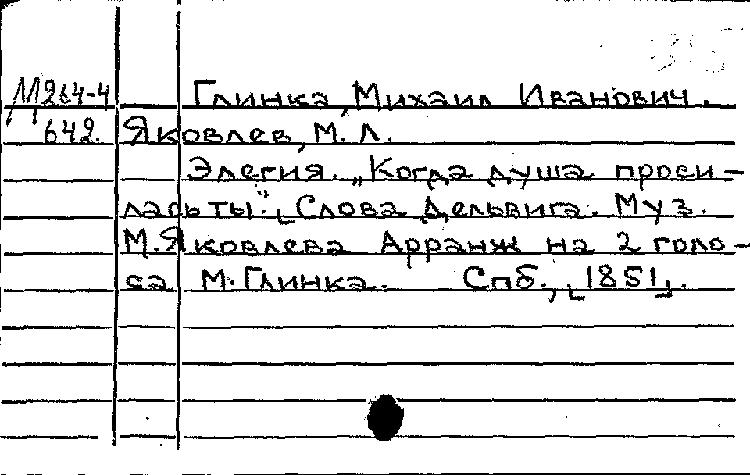 М264-4 Глинка, Михаил Иванович.
642. Яковлев, М. Л.
Элегия. „Когда душа проси-
лась ты". [Слова Дельвига. Муз.
М. Яковлева Арранж на 2 голо-
са М. Глинка. Спб., [1851].